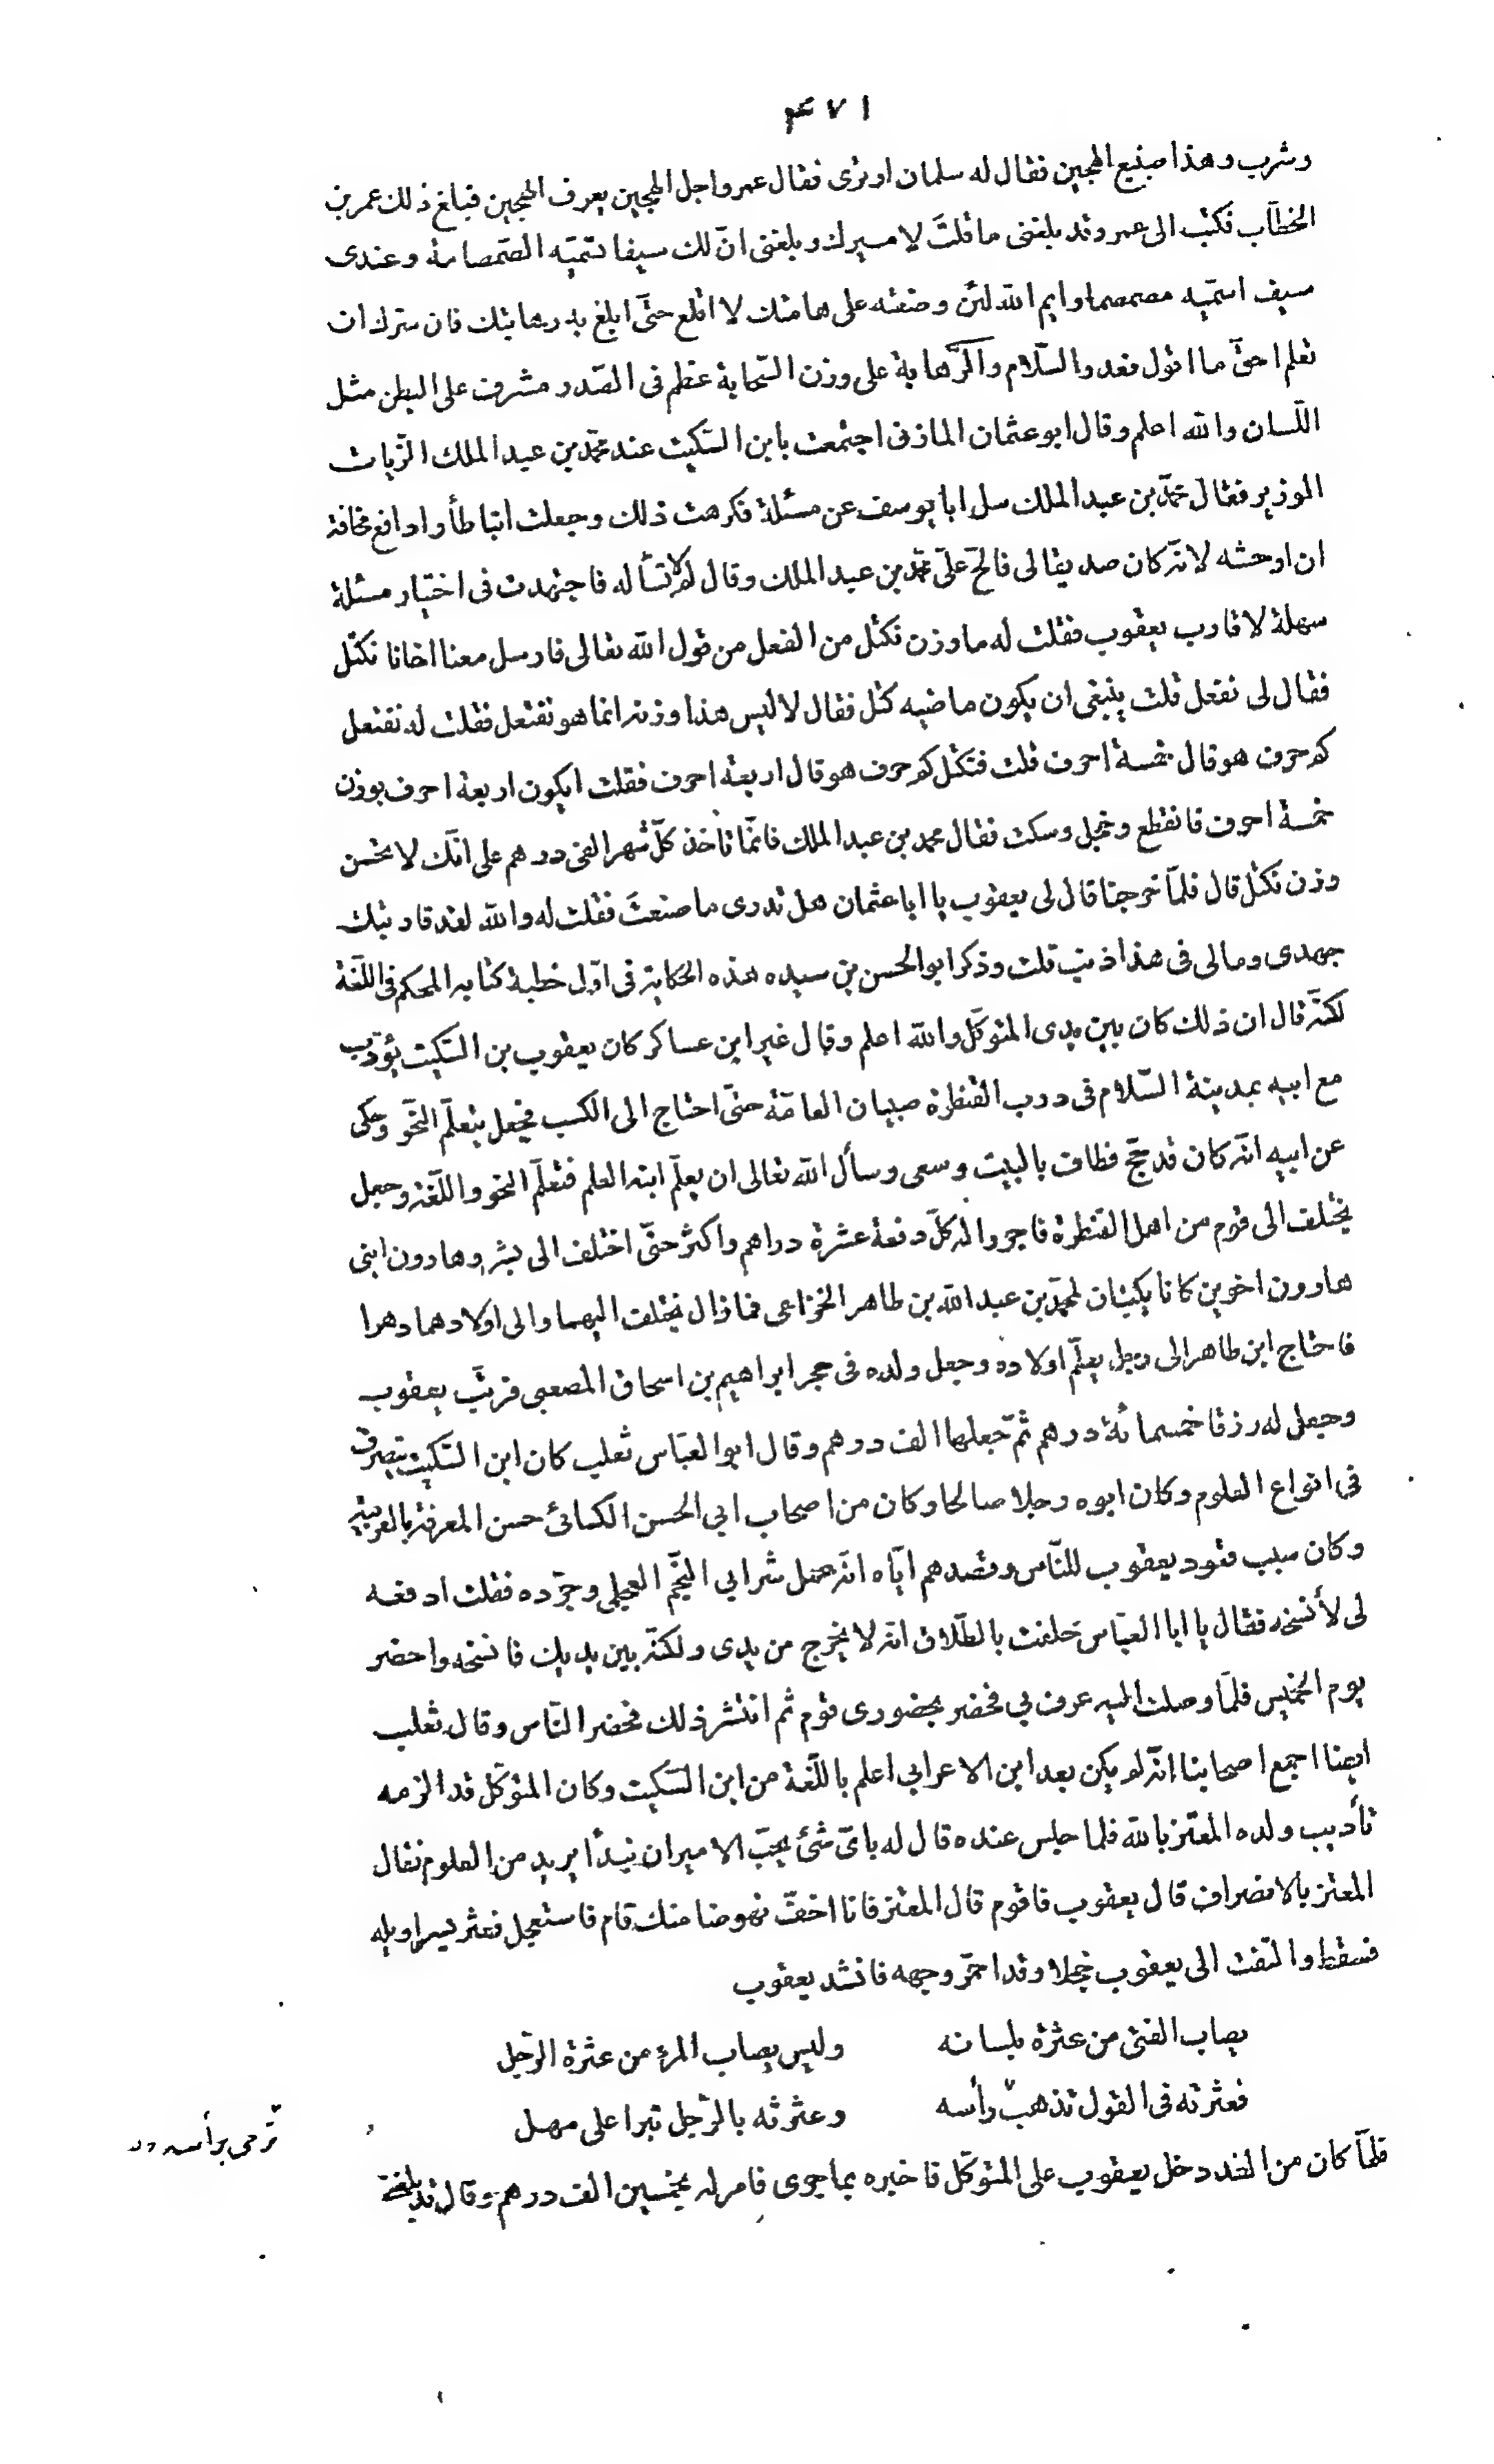 ۴۷۱
وشرب وهذا صنيع الهجين فقال له سلمان اوترى فقال عمرو اجل الهجين يعرف الهجين فبلغ ذلك عمر بن
الخطّاب فكتب الى عمرو قد بلغنى ما قلتَ لاميرك وبلغنى انّ لك سيفا تسمّيه الصّمصامة وعندى
سيف اسمّيه مصمصما وايم الله لئن وضعته على هامتك لا اقلع حتّى ابلغ به رهابتك فان سرّك ان
تعلم احقّ ما اقول فعد والسّلام والرَّهابة على وزن السّحابة عظم فى الصّدر مشرف على البطن مثل
اللّسان والله اعلم وقال ابو عثمان المازنى اجتمعت بابن السّكيت عند محمّد بن عبد الملك الزّيات
الوزير فقال محمّد بن عبد الملك سل ابا يوسف عن مسئلة فكرهت ذلك وجعلت اتباطأ وادافع مخافة
ان اوحشه لانّه كان صديقا لى فالحّ علىّ محمّد بن عبد الملك وقال لم لا تسأله فاجتهدت فى اختيار مسئلة
سهلة لاقارب يعقوب فقلت له ما وزن نكتل من الفعل من قول الله تعالى فارسل معنا اخانا نكتل
فقال لى نفعل قلت ينبغى ان يكون ماضيه كتل فقال لا ليس هذا وزنه انما هو نفتعل فقلت له نفتعل
كم حرف هو قال خمسة احرف قلت فنكتل كم حرف هو قال اربعة احرف فقلت ايكون اربعة احرف بوزن
خمسة احرف فانقطع وخجل وسكت فقال محمد بن عبد الملك فانّما تأخذ كلّ شهر الفى درهم على انّك لا تحسن
وزن نكتل قال فلمّا خرجنا قال لى يعقوب يا ابا عثمان هل تدرى ما صنعتَ فقلت له والله لقد قاربتك
جهدى ومالى فى هذا ذنب قلت وذكر ابو الحسن بن سيده هذه الحكاية فى اوّل خطبة كتابه المحكم فى اللّغة
لكنّه قال ان ذلك كان بين يدى المتوكّل والله اعلم وقال غير ابن عساكر كان يعقوب بن السّكيت يؤدّب
مع ابيه بمدينة السّلام فى درب القنطرة صبيان العامّة حتّى احتاج الى الكسب فجعل يتعلّم النّحو وحكى
عن ابيه انّه كان قد حجّ فطاف بالبيت وسعى وسأل الله تعالى ان يعلّم ابنه العلم فتعلّم النحو واللّغة وجعل
يختلف الى قوم من اهل القنطرة فاجروا له كلّ دفعة عشرة دراهم واكثر حتّى اختلف الى بشر وهارون ابنى
هارون اخوين كانا يكتبان لمحمّد بن عبد الله بن طاهر الخزاعى فما زال يختلف اليهما والى اولادهما دهرا
فاحتاج ابن طاهر الى رجل يعلّم اولاده وجعل ولده فى حجر ابراهيم بن اسحاق المصعبى فرتّب يعقوب
وجعل له رزقا خمسمائة درهم ثمّ جعلها الف درهم وقال ابو العبّاس ثعلب كان ابن السّكيت يتصرف
فى انواع العلوم وكان ابوه رجلا صالحا وكان من اصحاب ابى الحسن الكسائى حسن المعرفة بالعربيّة
وكان سبب قعود يعقوب للنّاس وقصدهم ايّاه انّه عمل شعر ابى النّجم العجلى وجرّده فقلت ادفعه
لى لأنسخه فقال يا ابا العبّاس حَلفت بالطّلاق انّه لا يخرج من يدى ولكنّه بين يديك فانسخه واحضر
يوم الخميس فلمّا وصلت اليه عرف بى فحضر بحضورى قوم ثم انتشر ذلك فحضر النّاس وقال ثعلب
ايضا اجمع اصحابنا انّه لم يكن بعد ابن الاعرابى اعلم باللّغة من ابن السّكيت وكان المتوكّل قد الزمه
تأديب ولده المعتز بالله فلما جلس عنده قال له باىّ شئ يحبّ الامير ان نبدأ يريد من العلوم فقال
المعتز بالانصراف قال يعقوب فاقوم قال المعتز فانا اخفّ نهوضا منك قام فاستعجل فعثر بسراويله
فسقط والتفت الى يعقوب خجلا وقد احمّر وجهه فانشد يعقوب
يصاب الفتى من عثرة بلسانه وليس يصاب المرء من عثرة الرّجل
فعثرته فى القول تذهب رأسه وعثرته بالرّجل تبرا على مهل
ترمى برأسه
فلمّا كان من الغد دخل يعقوب على المتوكّل فاخبره بما جرى فامر له بخمسين الف درهم وقال قد بلغنى